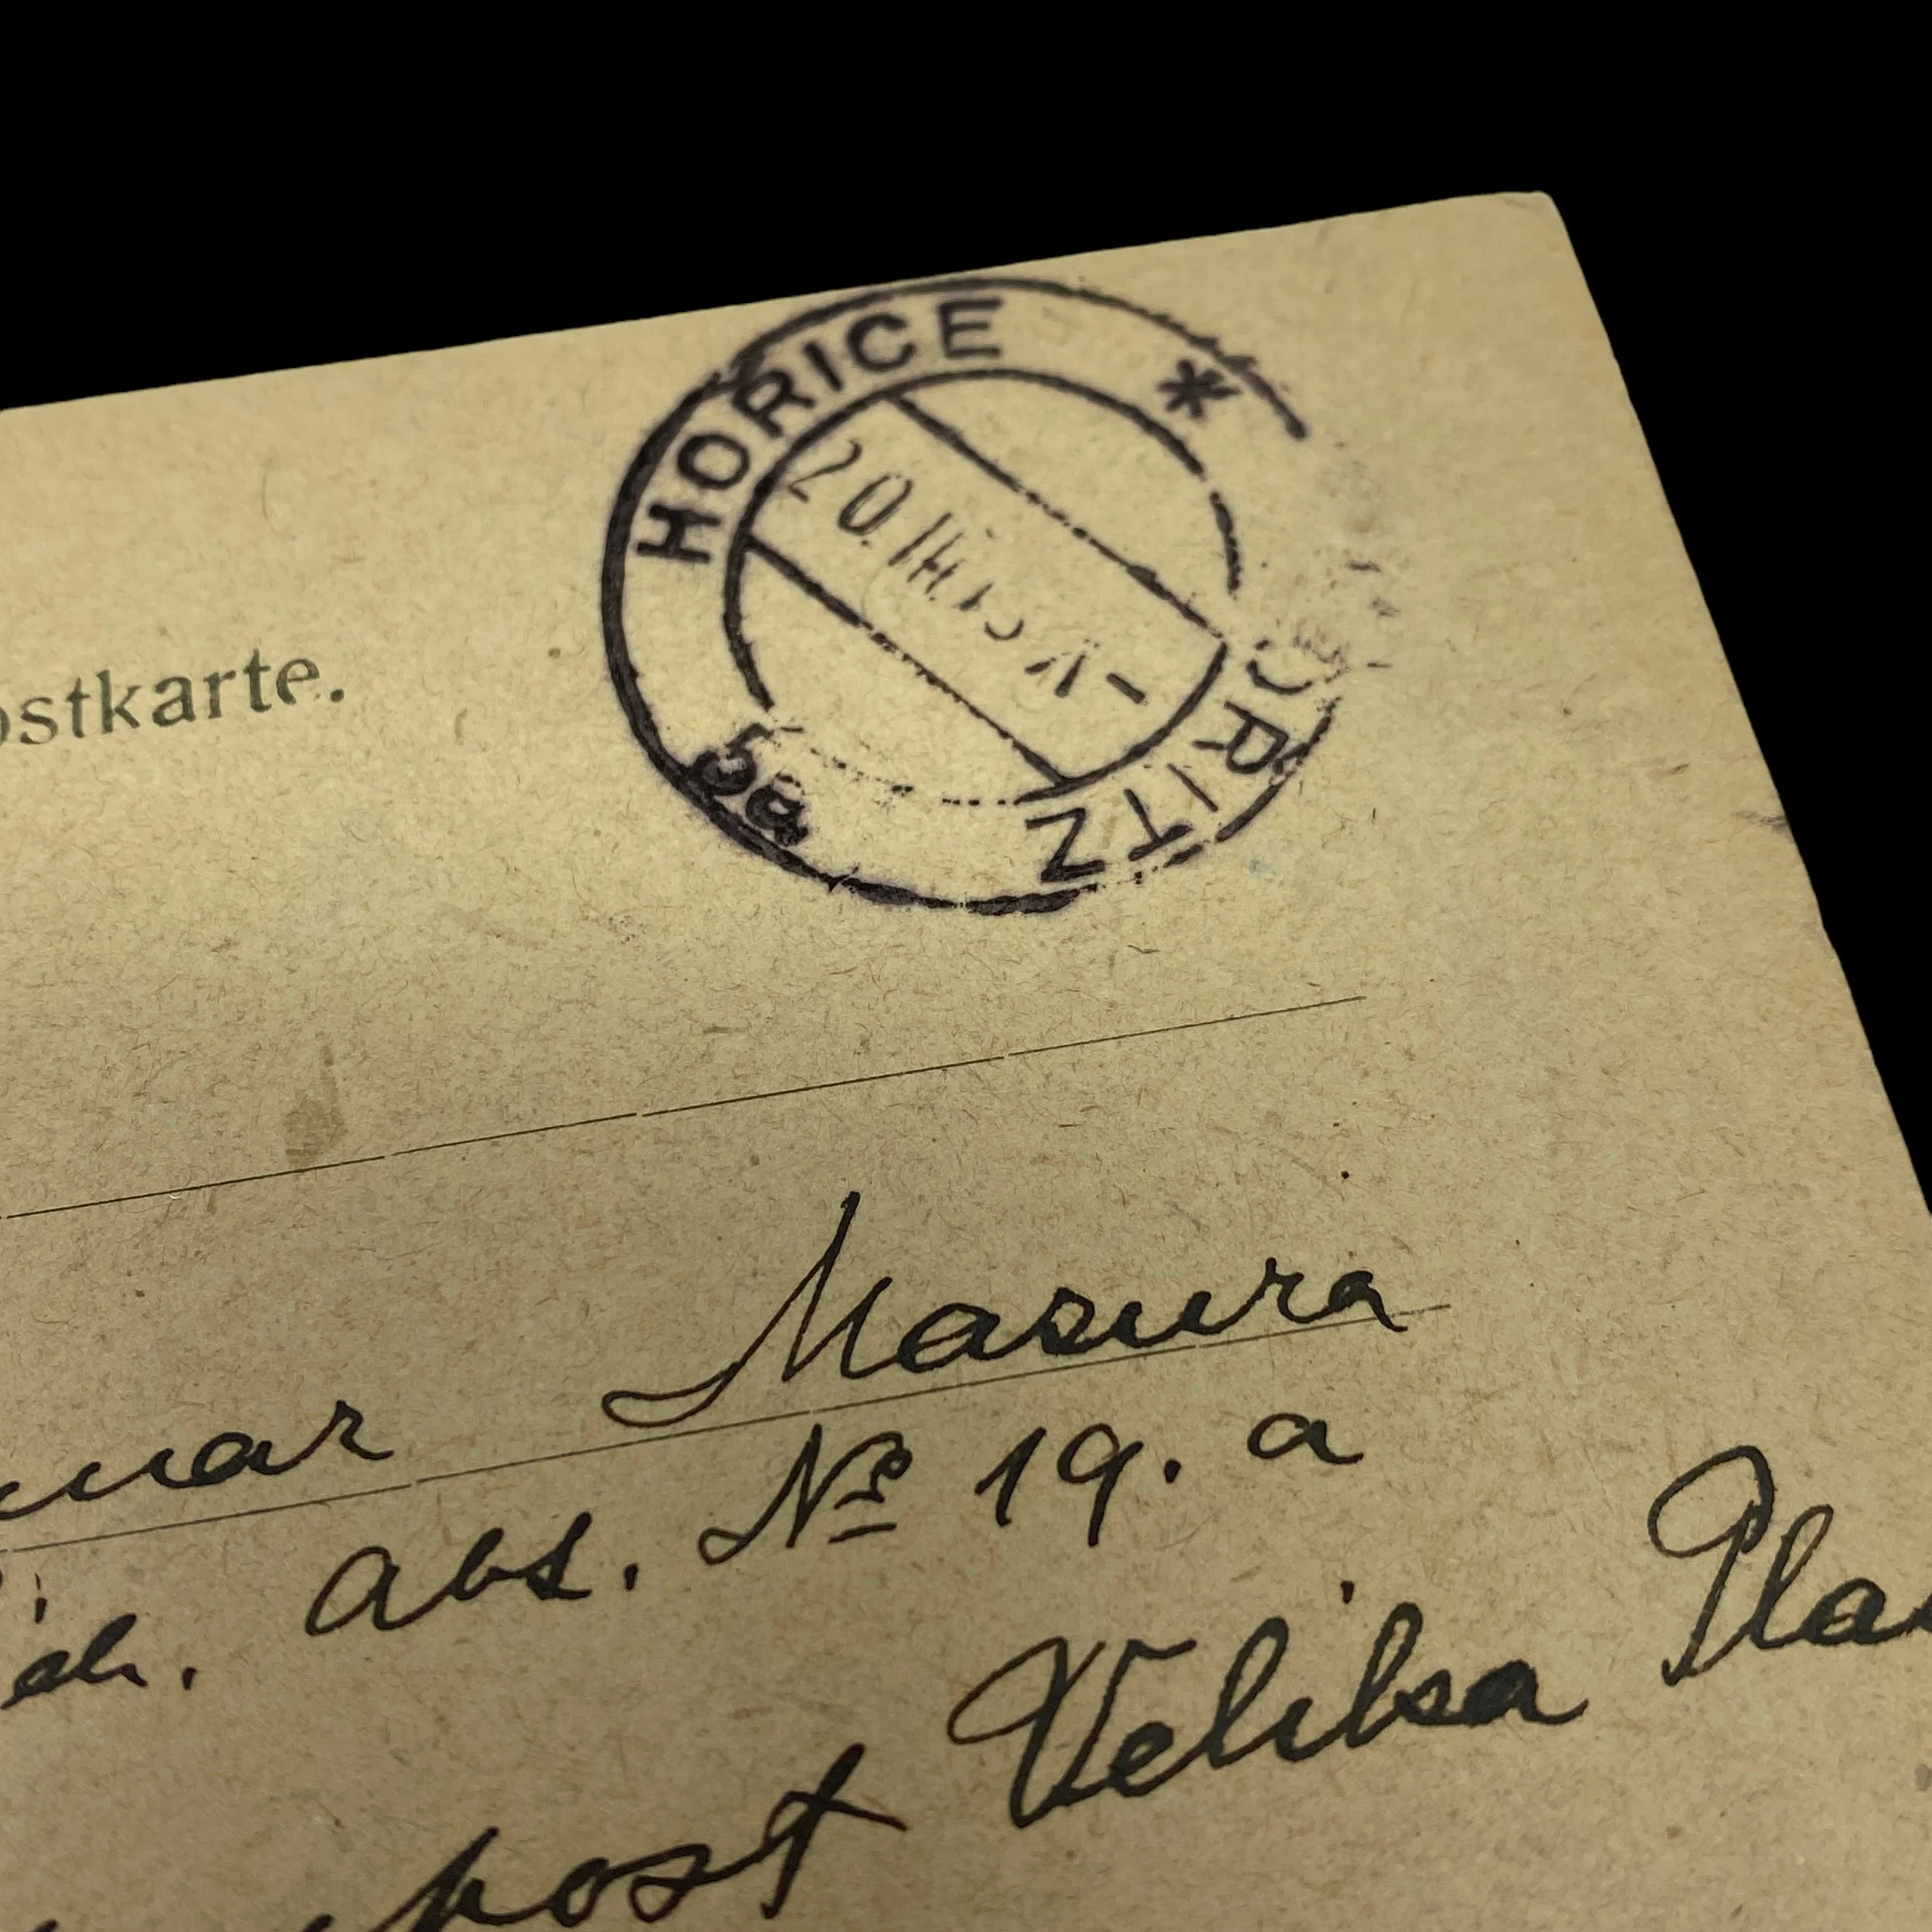 HORICE *
ORITZ
5a
20.III
ostkarte.
Masura
abs. № 19. a
Velika Pla
post